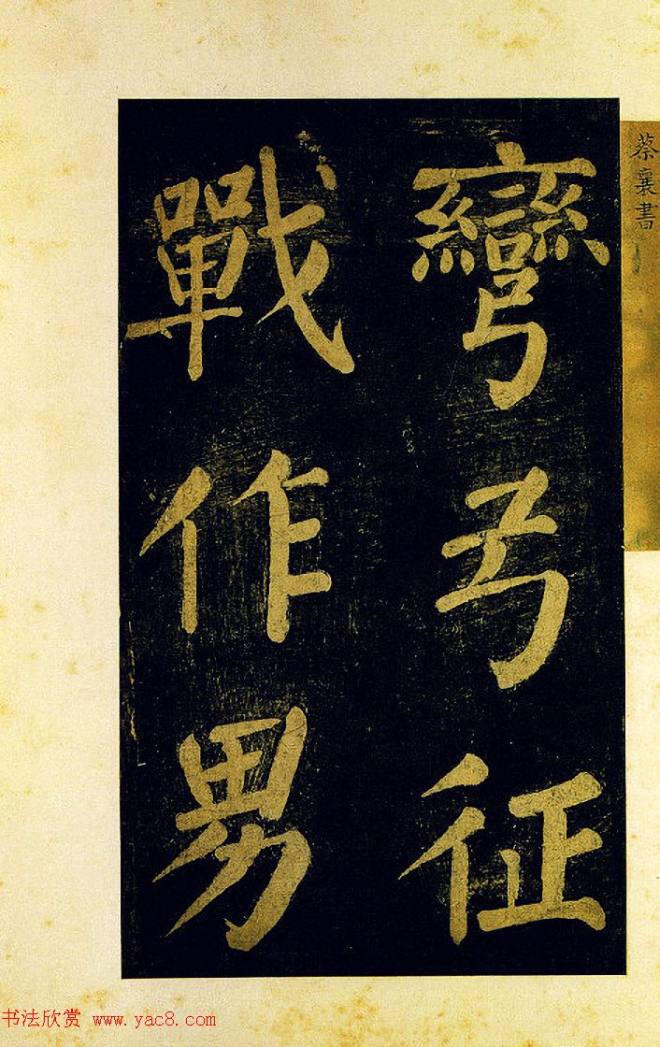 蔡襄書
彎弓征
戰作男
书法欣赏 www.yac8.com